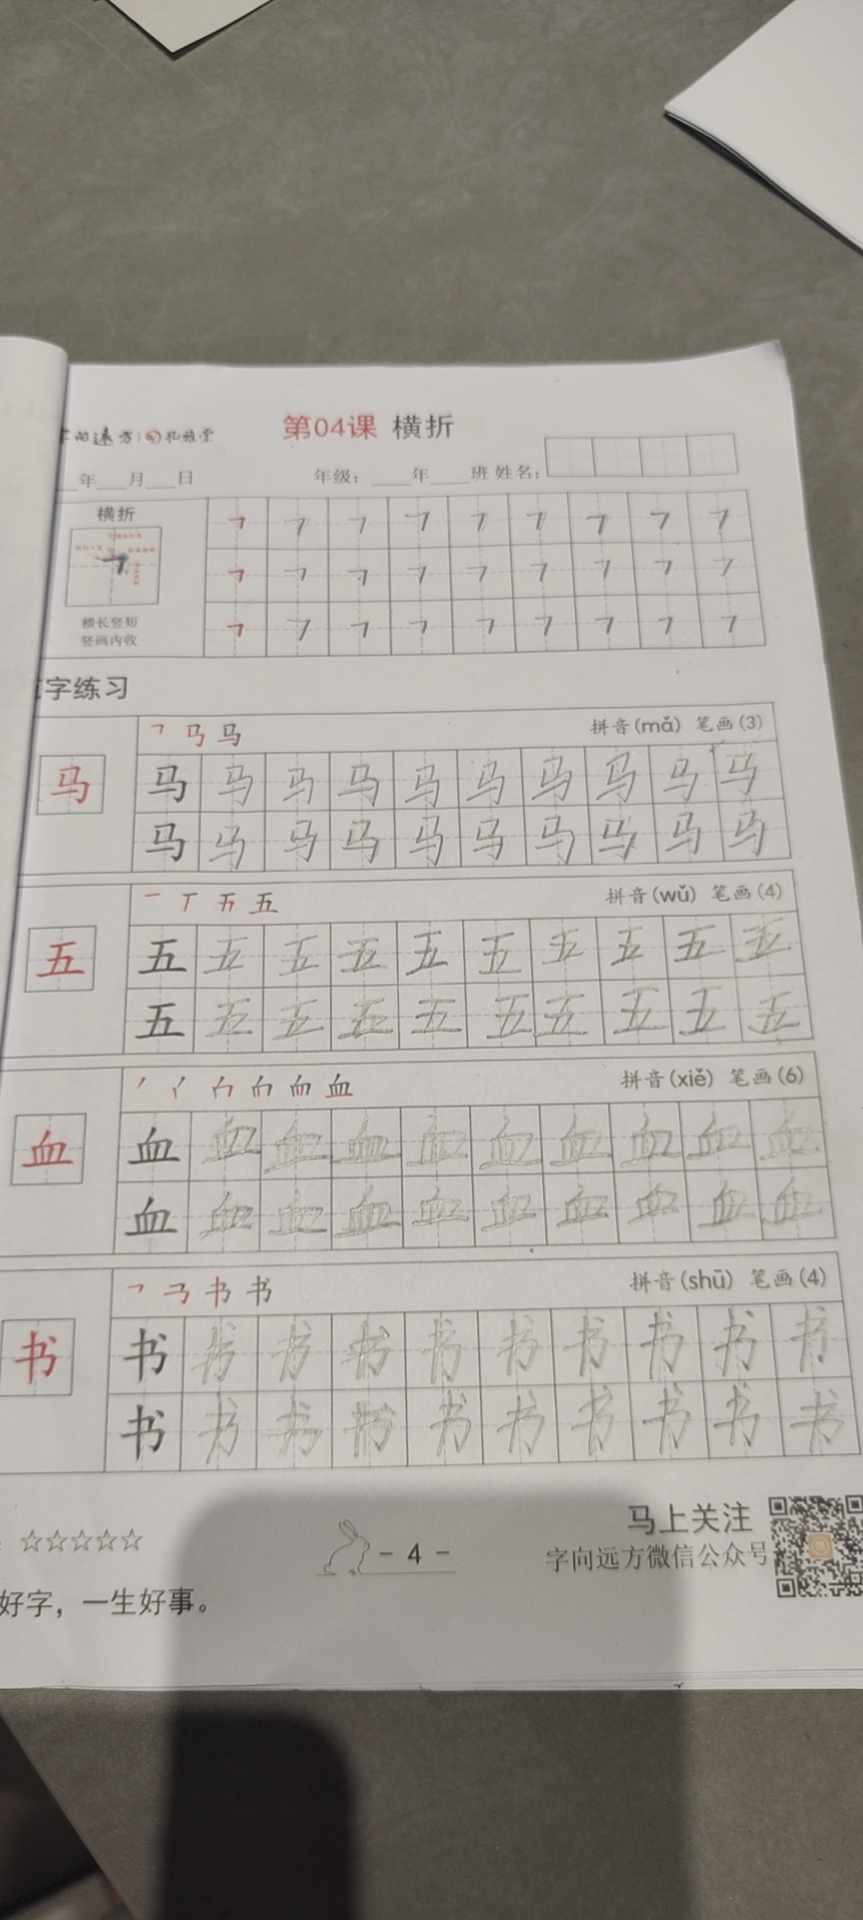 字向远方 礼雅堂 第04课 横折
年 月 日 年级： 年 班 姓名：
横折
横长竖短
竖画内收
字练习
马 拼音(mǎ) 笔画(3)
马 马 马 马 马 马 马 马 马 马 马
马 马 马 马 马 马 马 马 马 马
五 拼音(wǔ) 笔画(4)
五 五 五 五 五 五 五 五 五 五 五
五 五 五 五 五 五 五 五 五 五
血 拼音(xiě) 笔画(6)
血 血 血 血 血 血 血 血 血 血 血
血 血 血 血 血 血 血 血 血 血
书 拼音(shū) 笔画(4)
书 书 书 书 书 书 书 书 书 书 书
书 书 书 书 书 书 书 书 书 书
☆☆☆☆☆ - 4 - 马上关注
字向远方微信公众号
好字，一生好事。